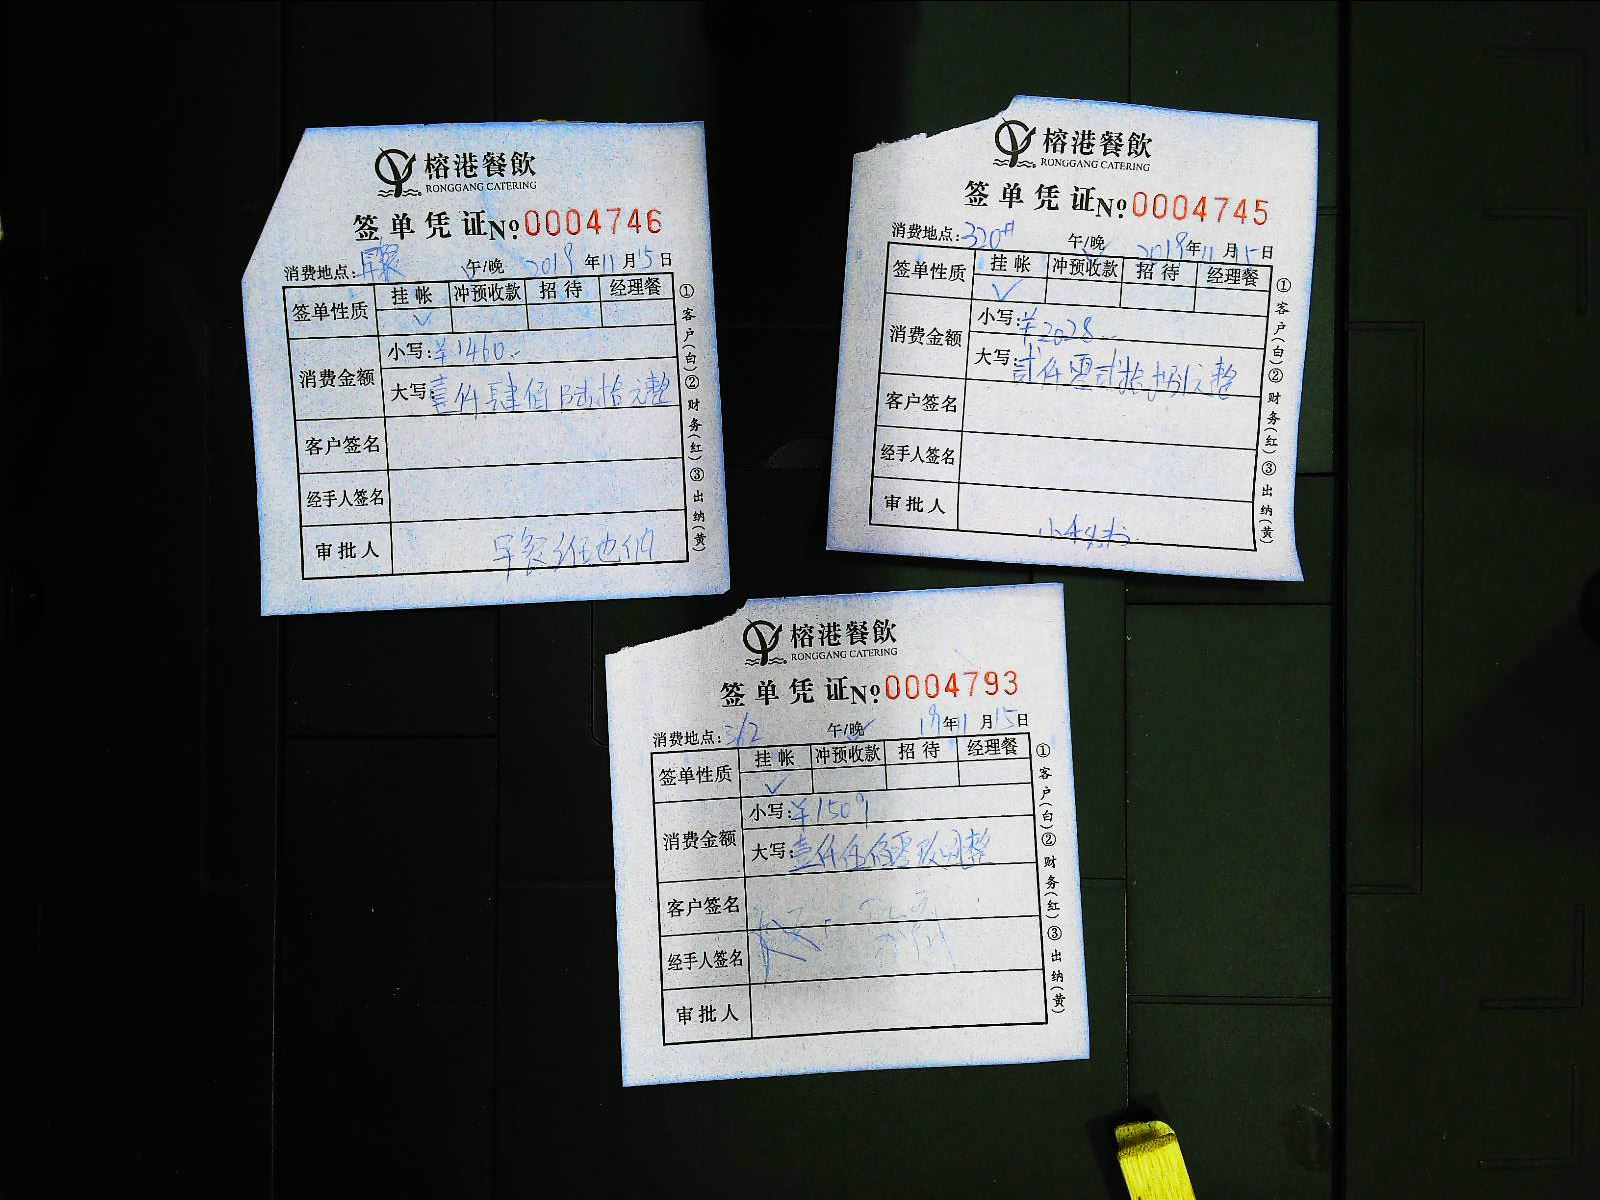 榕港餐飲
RONGGANG CATERING
签单凭证 No 0004746
消费地点: 午/晚 2019年11月15日
签单性质 挂帐 冲预收款 招待 经理餐
✓
消费金额 小写:¥1460..
大写:壹仟肆佰陆拾元整
客户签名
经手人签名
审批人
①客户(白)②财务(红)③出纳(黄)
榕港餐飲
RONGGANG CATERING
签单凭证 No 0004745
消费地点:320# 午/晚 2019年11月15日
签单性质 挂帐 冲预收款 招待 经理餐
✓
消费金额 小写:¥2028..
大写:贰仟零贰拾捌元整
客户签名
经手人签名
审批人
①客户(白)②财务(红)③出纳(黄)
榕港餐飲
RONGGANG CATERING
签单凭证 No 0004793
消费地点:362 午/晚✓ 19年11月15日
签单性质 挂帐 冲预收款 招待 经理餐
✓
消费金额 小写:¥1509
大写:壹仟伍佰零玖圆整
客户签名
经手人签名
审批人
①客户(白)②财务(红)③出纳(黄)